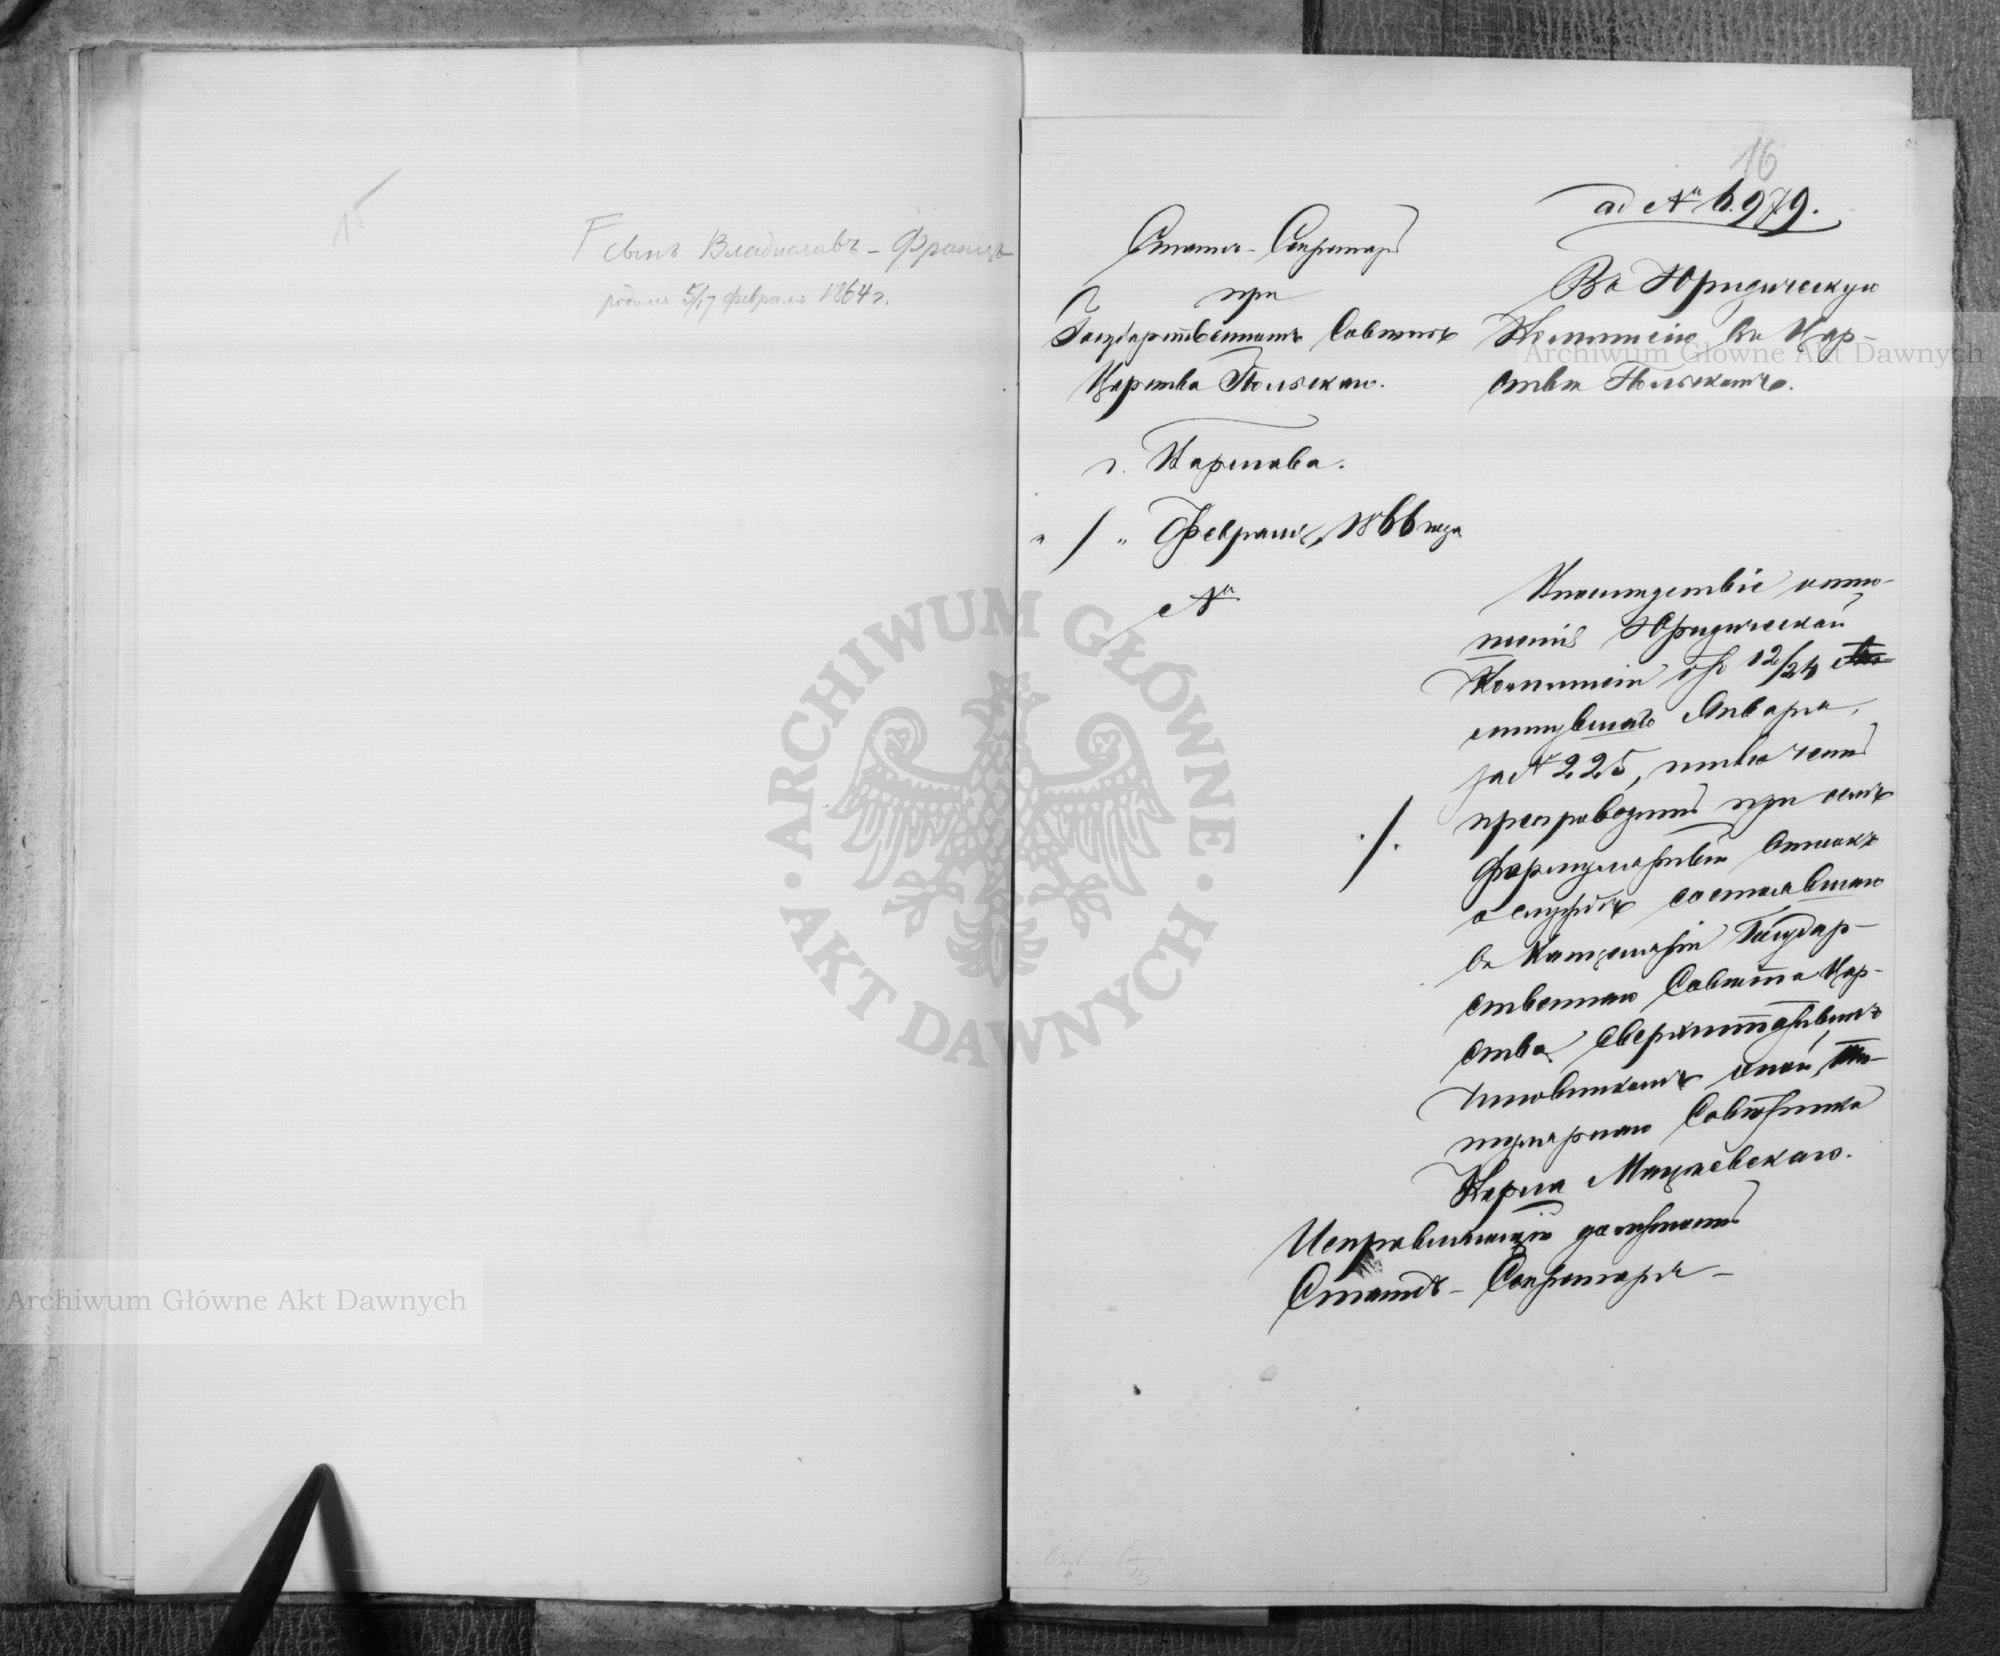 15
сынъ Владиславъ - Францъ
родился 5/17 февраля 1864 г.
16
ad № 6.979.
Статсъ-Секретарь
при
Государственномъ Совѣтѣ
Царства Польскаго.
г. Варшава.
" / " Февраля 1866 года
№
Въ Юридическую
Коммисію въ Цар-
ствѣ Польскомъ.
Въ послѣдствіе отно-
шенія Юридической
Коммисіи отъ 12/24
минувшаго Января,
за № 225, имѣю честь
препроводить при семъ
./.
формулярный списокъ
о службѣ состоявшаго
въ Канцеляріи Государ-
ственнаго Совѣта Цар-
ства сверхштатнымъ
чиновникомъ оной, Ти-
тулярнаго Совѣтника
Карла Мацѣевскаго.
Исправляющій должность
Статсъ-Секретаря
ARCHIWUM GŁÓWNE
AKT DAWNYCH
Archiwum Główne Akt Dawnych
Archiwum Główne Akt Dawnych